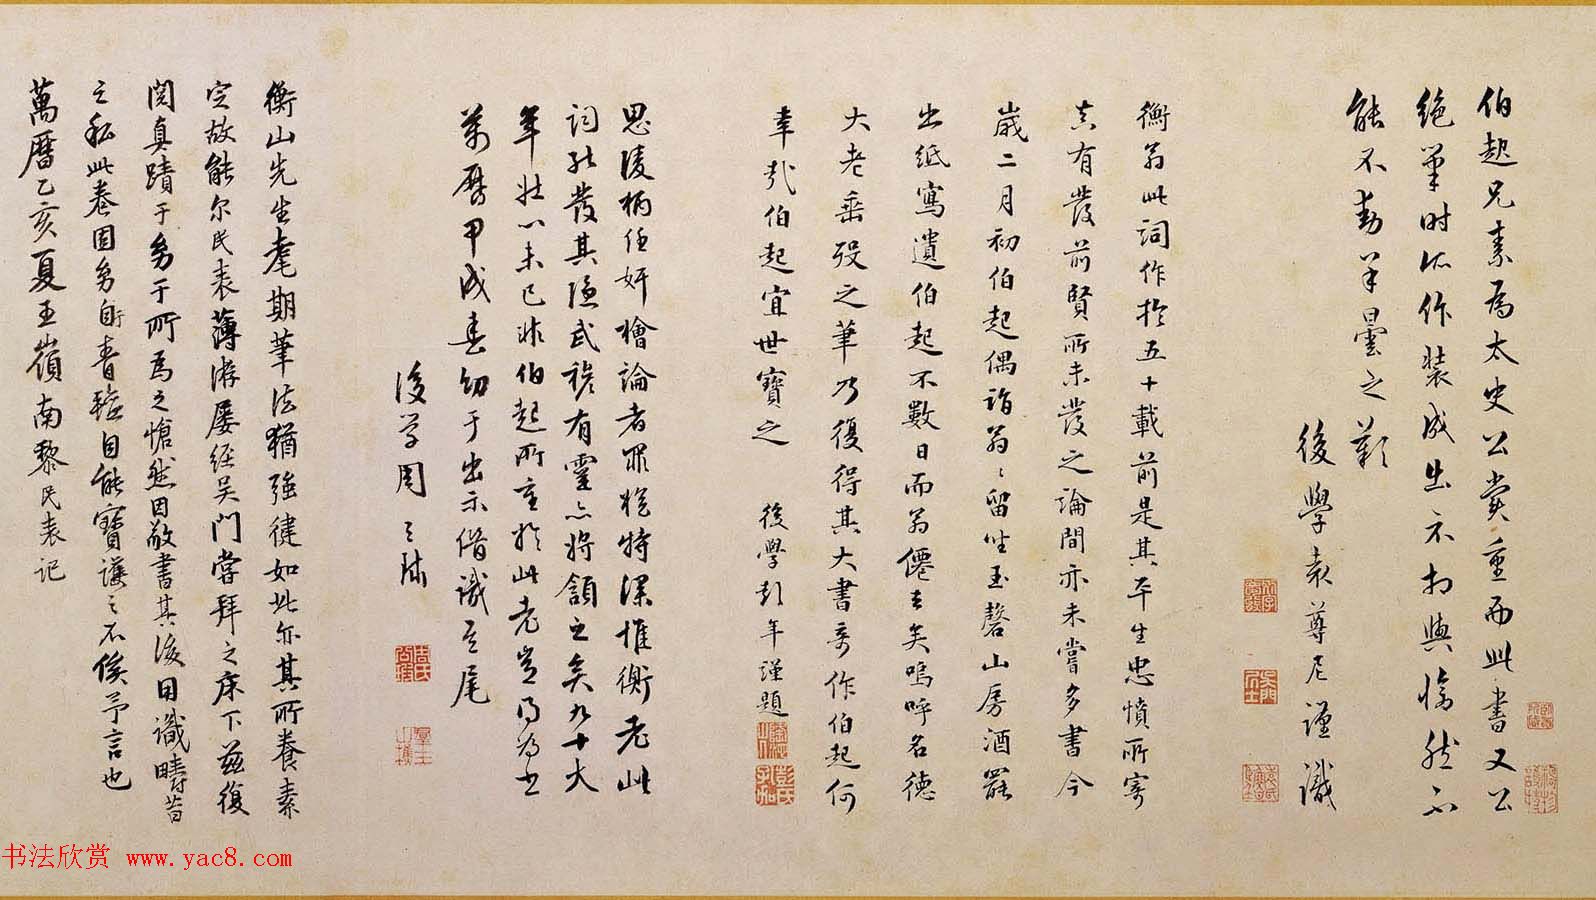 伯起兄素為太史公賞重而此書又公
絕筆時所作裝成出示相與愴然不
能不動羊曇之歎
後學袁尊尼謹識
衡翁此詞作於五十載前是其平生忠憤所寄
真有發前賢所未發之論間亦未嘗多書今
歲二月初伯起偶詣翁翁留坐玉磬山房酒罷
出紙寫遺伯起不數日而翁僊去矣嗚呼名德
大老垂歿之筆乃復得其大書奇作伯起何
幸哉伯起宜世寶之
後學彭年謹題
思陵柄任奸檜論者罪桧特深惟衡老此
詞能發其隱武穆有靈亦將頷之矣九十大
年壯心未已非伯起所重於此老豈得為書
萬曆甲戌春幼于出示僭識其尾
後學周天球
衡山先生耄期筆法猶強健如此亦其所養素
定故能尔民表薄游屡经吴門嘗拜之床下茲復
閱真蹟于幼于所為之愴然因敬書其後用識疇昔
之私此卷固
萬曆乙亥夏五嶺南黎民表记
书法欣赏 www.yac8.com